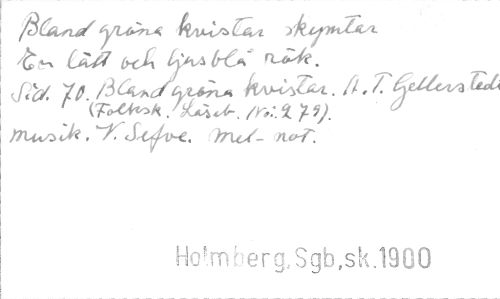 Bland gröna kvistar skymtar
En lätt och ljusblå rök.
Sid. 70. Bland gröna kvistar. A. T. Gellerstedt
(Folksk. Läseb. No: 279).
musik. V. Sefve. Mel-not.
Holmberg, Sgb,sk.1900